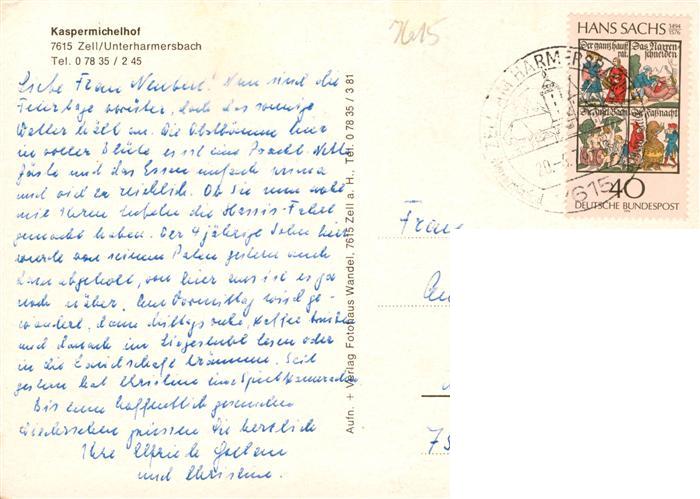 Kaspermichelhof
7615 Zell/Unterharmersbach
Tel. 0 78 35 / 2 45
7615
HANS SACHS 1494 1576
Der gantz hauß rat. Das Narren schneiden
Faßnacht
40
DEUTSCHE BUNDESPOST
ZELL AM HARMERSB
20.
7615
Liebe Frau Neubert! Nun sind die
Feiertage vorüber, doch das sonnige
Wetter hält an. Die Obstbäume hier
in voller Blüte es ist eine Pracht. Nette
Gäste und das Essen einfach prima
und viel zu reichlich. Ob Sie nun wohl
mit Ihrem die Fahrt
gemacht haben. Der 4 jährige Sohn hier
wurde von seinem Paten gestern auch
dann abgeholt, von hier aus ist es ja
noch näher. Am Vormittag wird ge-
wandert, dann Mittagsruhe, Kaffee trinken
und danach im Liegestuhl lesen oder
in die Landschaft träumen. Seit
gestern hat Christine eine Spielkameradin
Bis zum hoffentlich gesunden
Wiedersehen grüssen Sie herzlich
Ihre Elfriede
und Christine.
Aufn. + Verlag Fotohaus Wandel, 7615 Zell a. H., Tel. 0 78 35 / 3 81
Frau
75